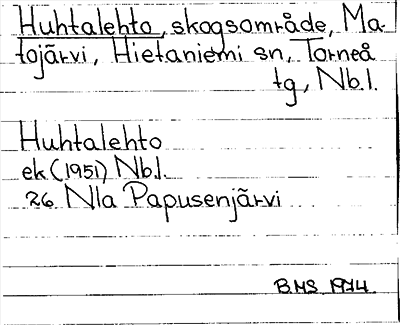 Huhtalehto, skogsområde, Ma-
tojärvi, Hietaniemi sn, Torneå
tg, Nb.l.
Huhtalehto
ek (1951) Nb.l.
26 Nla Papusenjärvi
B.MS 1974